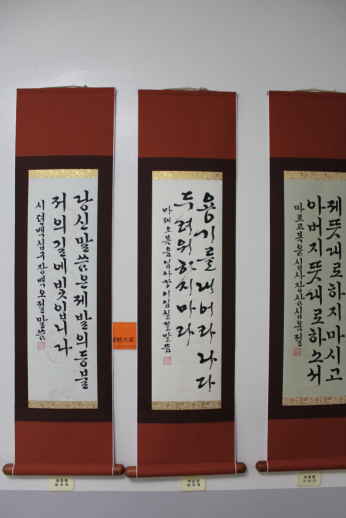 당신 말씀은 제 발의 등불
저의 길에 빛입니다
시편 백십구장 백오절 말씀
용기를 내어라 나다
두려워하지 마라
마태오복음 십사장 이십칠절 말씀
제 뜻대로 하지 마시고
아버지 뜻대로 하소서
마르코복음 십사장 삼십육절